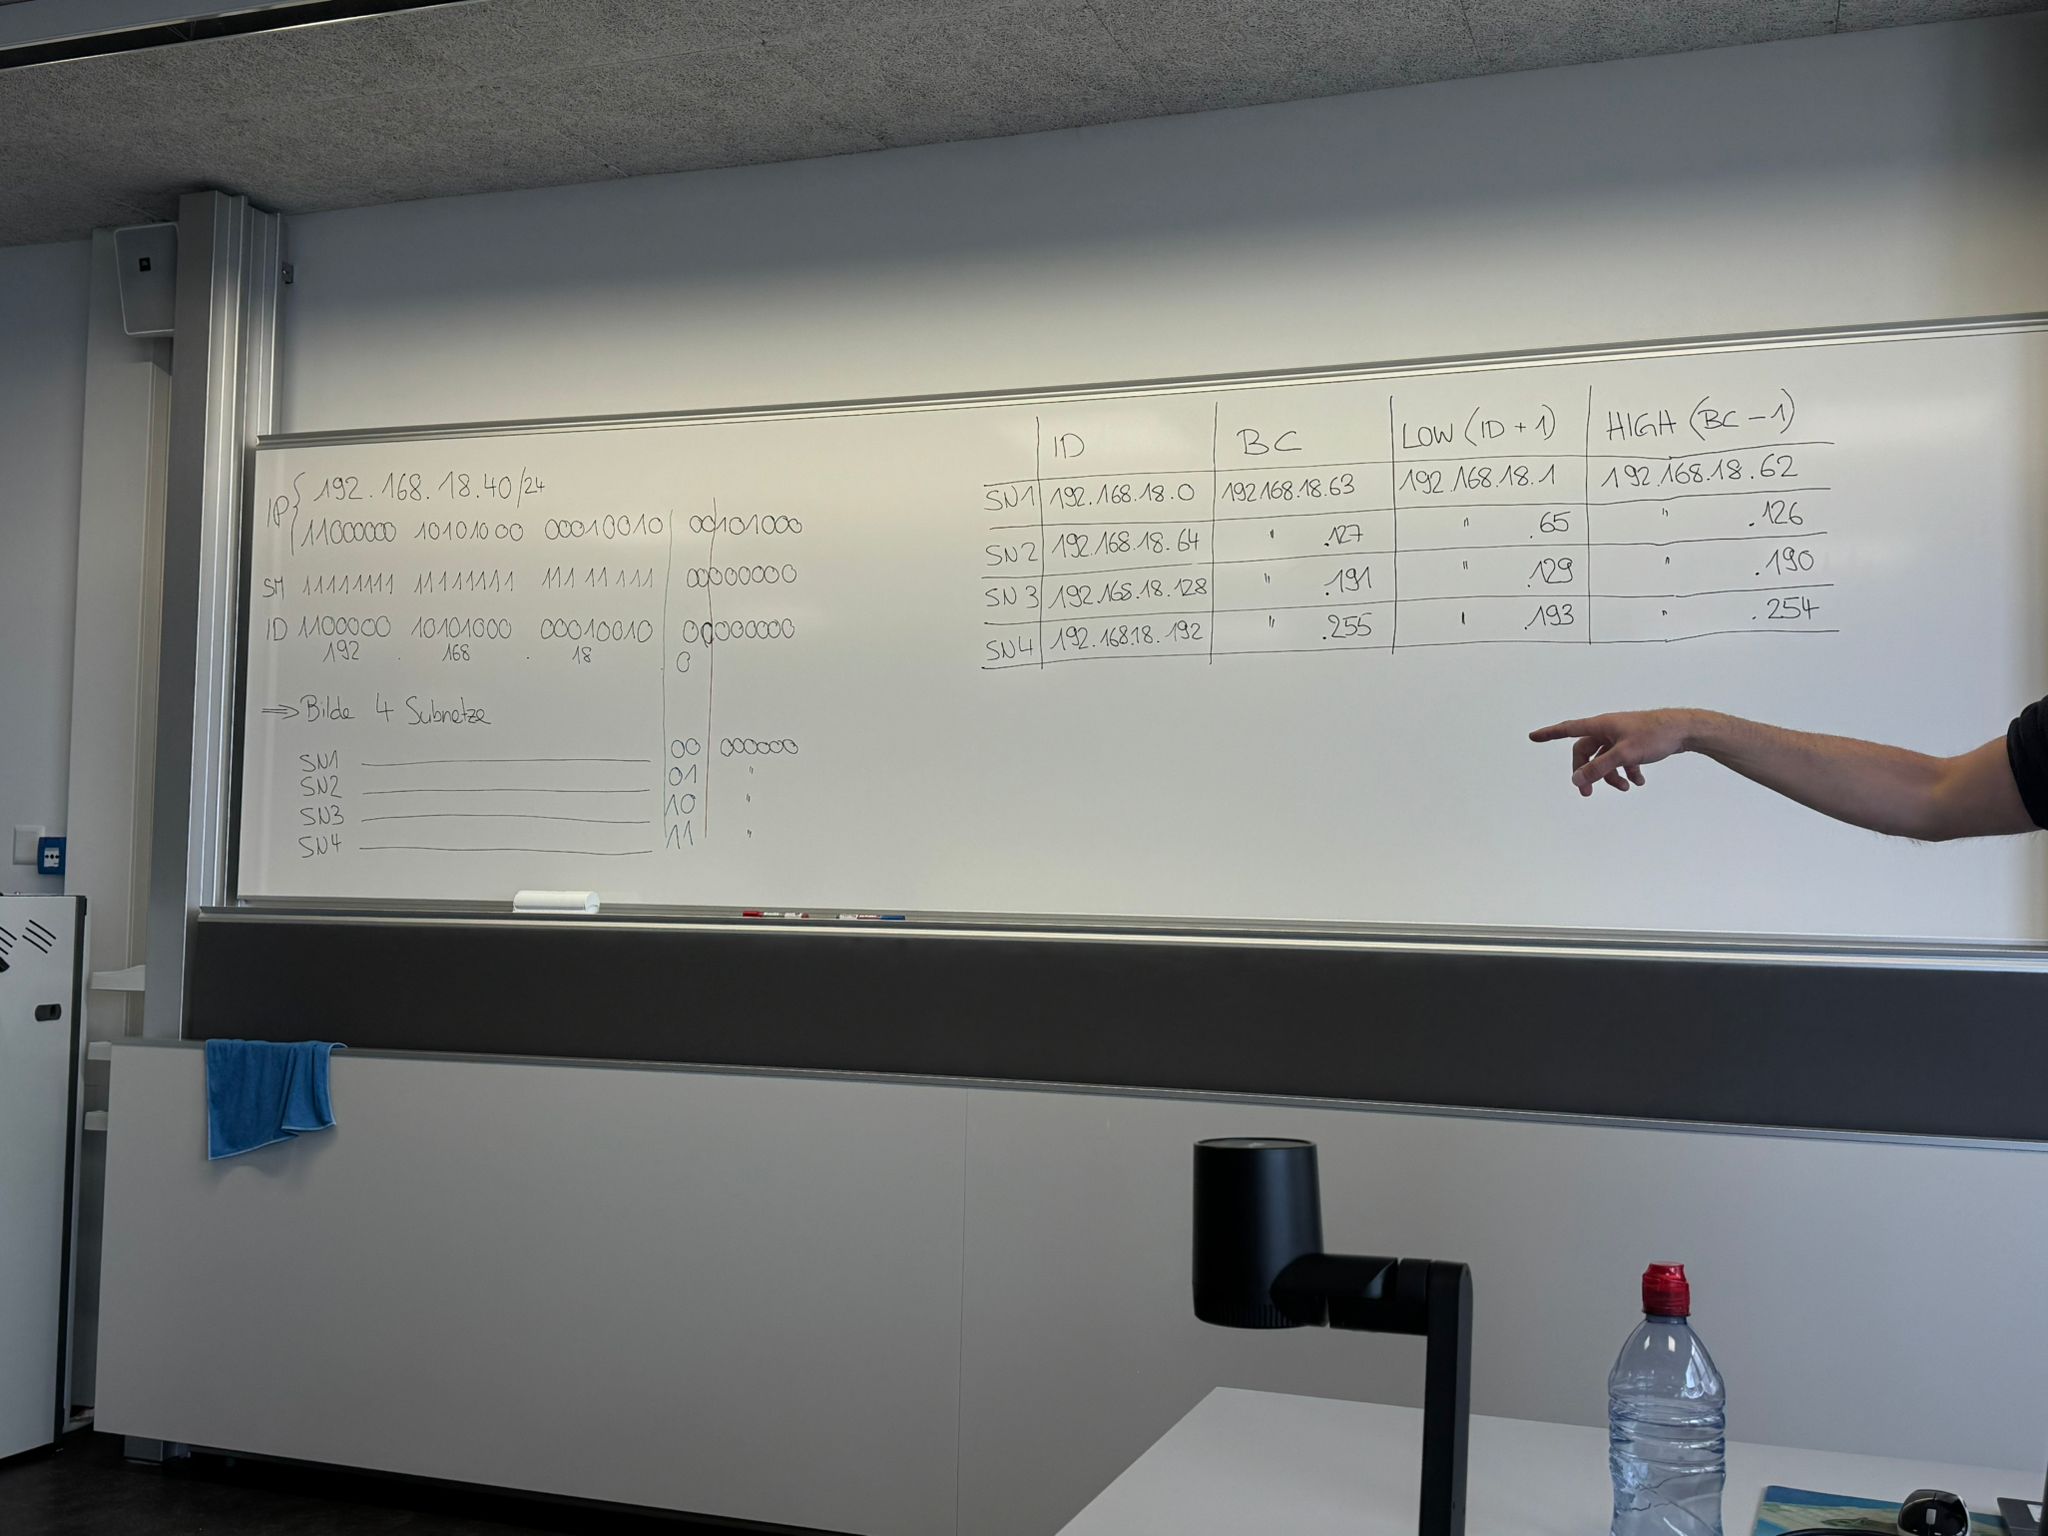 IP { 192.168.18.40/24
11000000 10101000 00010010 00101000
SM 11111111 11111111 11111111 00000000
ID 1100000 10101000 00010010 00000000
192 . 168 . 18 . 0
⇒ Bilde 4 Subnetze
SN1 00 000000
SN2 01 "
SN3 10 "
SN4 11 "
ID BC LOW (ID + 1) HIGH (BC - 1)
SN1 192.168.18.0 192168.18.63 192.168.18.1 192.168.18.62
SN2 192.168.18.64 " .127 " .65 " .126
SN3 192.168.18.128 " .191 " .129 " .190
SN4 192.16818.192 " .255 " .193 " .254